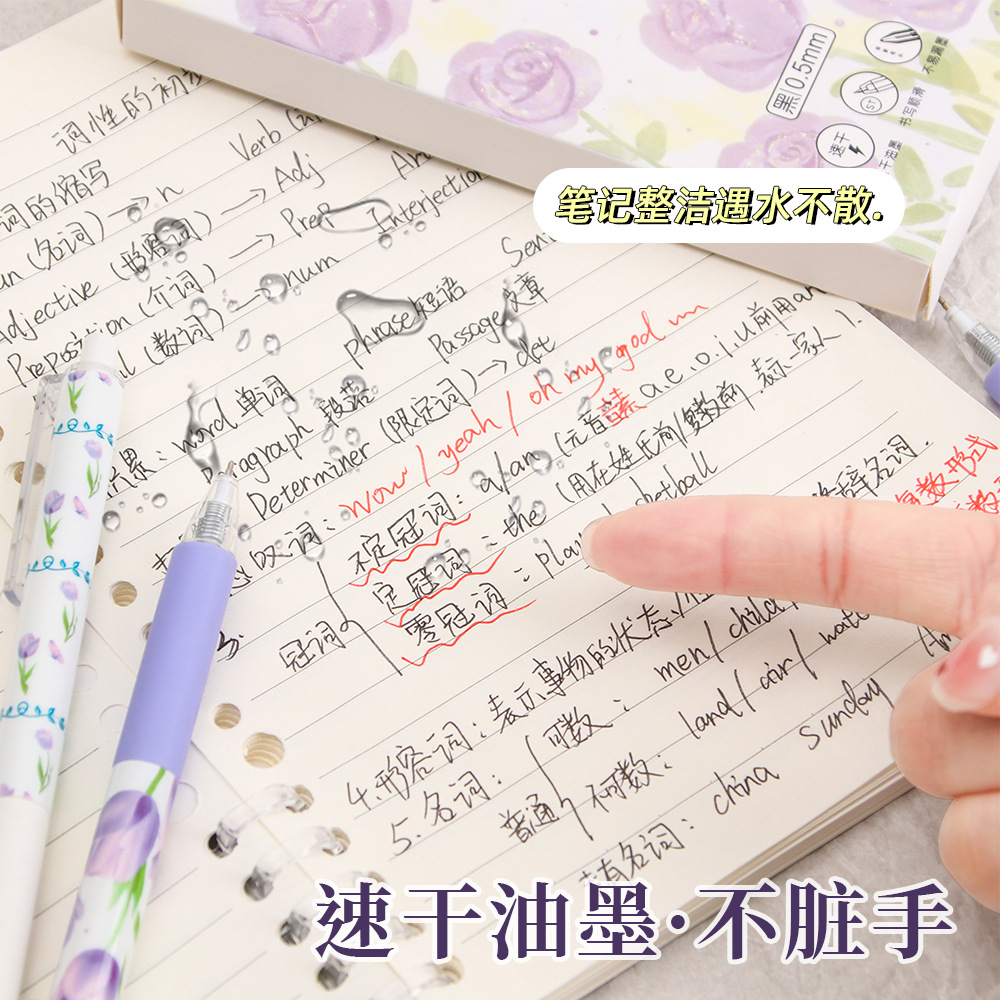 黑0.5mm
速干
干油墨
ST
书写顺滑
不易漏墨
笔记整洁遇水不散.
词性的初
词的缩写
(名词)→n
Verb
Adjective (形容词)→Adj
Preposition (介词)→Prep
Interjection
(数词)→num
phrase 短语
Passage 文章
word 单词
Paragraph 段落
Determiner (限定词)→det
wow/yeah/oh my god
不定冠词: a/an (元音音素 a.e.o.i.u前用an
冠词
定冠词: the (用在姓氏前/复数前,表示一家人).
零冠词: play
数形式
4.形容词: 表示事物的状态
5.名词:
普通
可数: men/child
不可数: land/air/wate
有名词: china sunday
速干油墨·不脏手